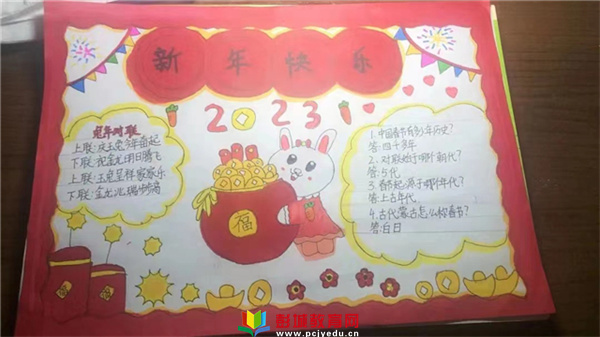 新年快乐
2023
兔年对联
上联:庆玉兔今年奋起
下联:祝金龙明日腾飞
上联:玉兔呈祥家家乐
下联:金龙兆瑞步步高
1.中国春节有多少年历史?
答:四千多年
2.对联始于哪个朝代?
答:五代
3.春节起源于哪个年代?
答:上古年代
4.古代蒙古怎么称春节?
答:白日
福
福
彭城教育网
www.pcjyedu.cn